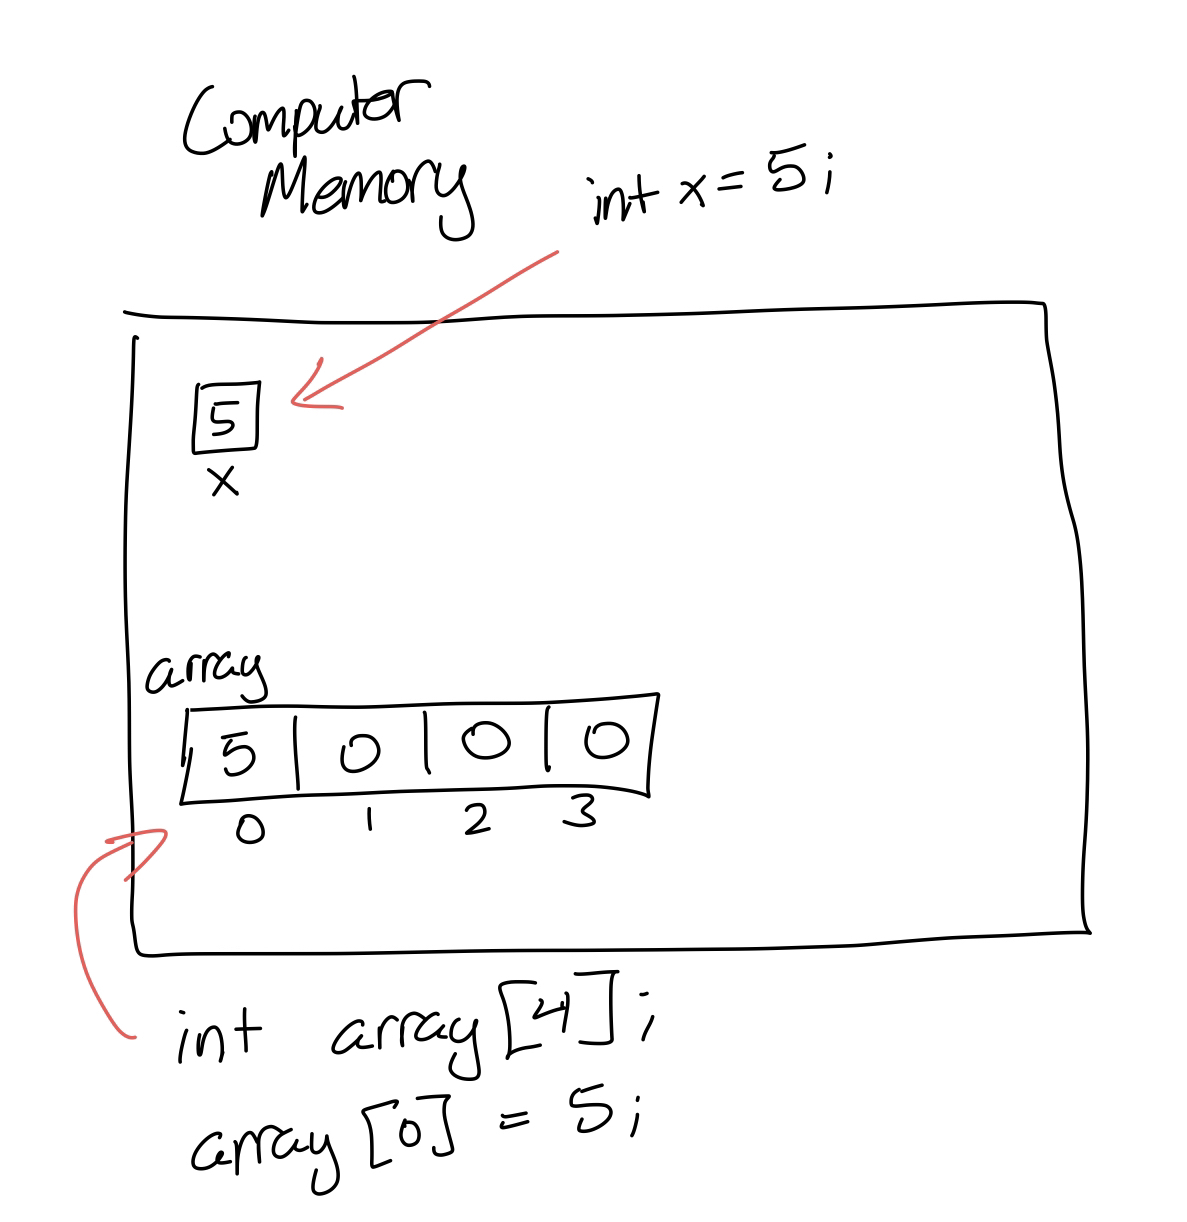 Computer
Memory
int x = 5;
5
x
array
5 0 0 0
0 1 2 3
int array [4];
array [0] = 5;